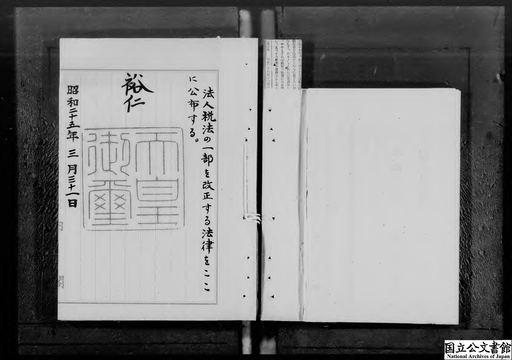 法人税法の一部を改正する法律をここ
に公布する。
裕仁
天皇
御璽
昭和二十五年三月三十一日
国立公文書館
National Archives of Japan